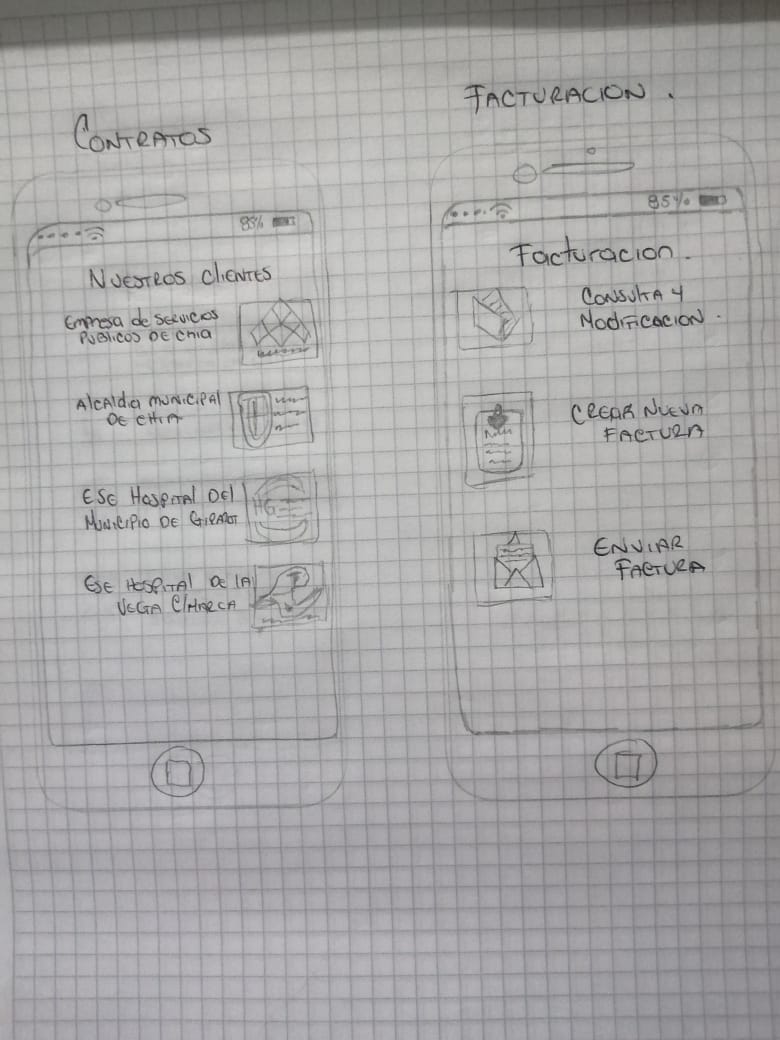 CONTRATOS
85%
NUESTROS CLIENTES
Empresa de Servicios
Publicos DE CHIA
Alcaldia MUNICIPAL
DE CHIA
ESE HOSPITAL DEl
MUNICIPIO DE GIRARDOT
ESE HOSPITAL DE LA
VEGA C/MARCA
FACTURACION.
85%
Facturacion.
CONSULTA Y
MODIFICACION.
CREAR NUEVA
FACTURA
ENVIAR
FACTURA